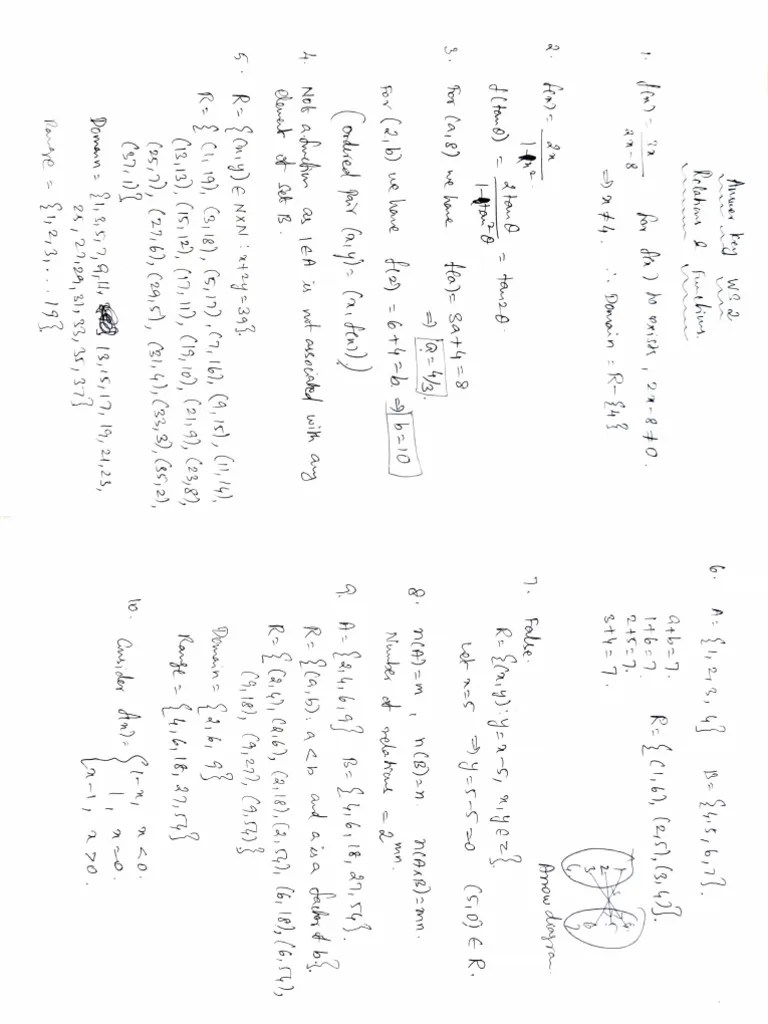 Answer Key WS 2
Relations & Functions.
1. f(x) = 3x / 2x-8 for f(x) to exist, 2x-8≠0.
⇒ x≠4. ∴ Domain = R-{4}
2. f(x) = 2x / 1-x²
f(tanθ) = 2tanθ / 1-tan²θ = tan2θ.
3. For (a,8) we have f(a) = 3a+4 = 8
⇒ a = 4/3.
For (2,b) we have f(2) = 6+4 = b ⇒ b=10
(ordered pair (x,y) = (x, f(x)))
4. Not a function as 1∈A is not associated with any
element of set B.
5. R = {(x,y) ∈ N×N : x+2y=39}.
R = { (1,19), (3,18), (5,17), (7,16), (9,15), (11,14),
(13,13), (15,12), (17,11), (19,10), (21,9), (23,8),
(25,7), (27,6), (29,5), (31,4), (33,3), (35,2),
(37,1)}
Domain = {1,3,5,7,9,11, 13,15,17,19,21,23,
25,27,29,31,33,35,37}
Range = {1,2,3,...19}
6. A = {1,2,3,4} B = {4,5,6,7}.
a+b=7.
1+6=7. R = {(1,6), (2,5), (3,4)}.
2+5=7.
3+4=7.
Arrow diagram
7. False.
R = {(x,y) : y = x-5, x,y ∈ Z}.
Let x=5 ⇒ y = 5-5 = 0 (5,0) ∈ R.
8. n(A)=m, n(B)=n. n(A×B)=mn.
Number of relations = 2^mn.
9. A = {2,4,6,9} B = {4,6,18,27,54}.
R = {(a,b) : a<b and a is a factor of b}.
R = {(2,4), (2,6), (2,18), (2,54), (6,18), (6,54),
(9,18), (9,27), (9,54)}
Domain = {2,6,9}
Range = {4,6,18,27,54}
10. Consider f(x) = { 1-x, x<0.
1, x=0.
x-1, x>0.